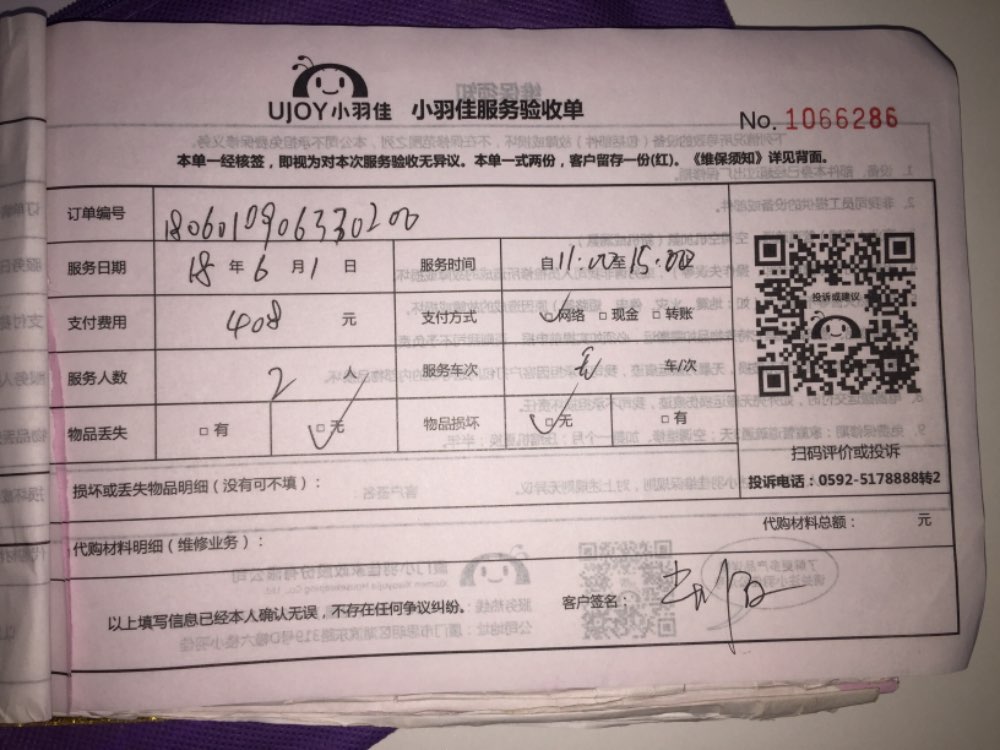 UJOY小羽佳 小羽佳服务验收单
No. 1066286
本单一经核签，即视为对本次服务验收无异议。本单一式两份，客户留存一份(红)。《维保须知》详见背面。
订单编号 1806010906330200
服务日期 18 年 6 月 1 日 服务时间 自11:00至15:00
支付费用 408 元 支付方式 网络 现金 转账
服务人数 2 人 服务车次 车/次
物品丢失 有 无 物品损坏 无 有
投诉或建议
扫码评价或投诉
投诉电话：0592-5178888转2
损坏或丢失物品明细（没有可不填）：
代购材料总额： 元
代购材料明细（维修业务）：
以上填写信息已经本人确认无误，不存在任何争议纠纷。 客户签名：